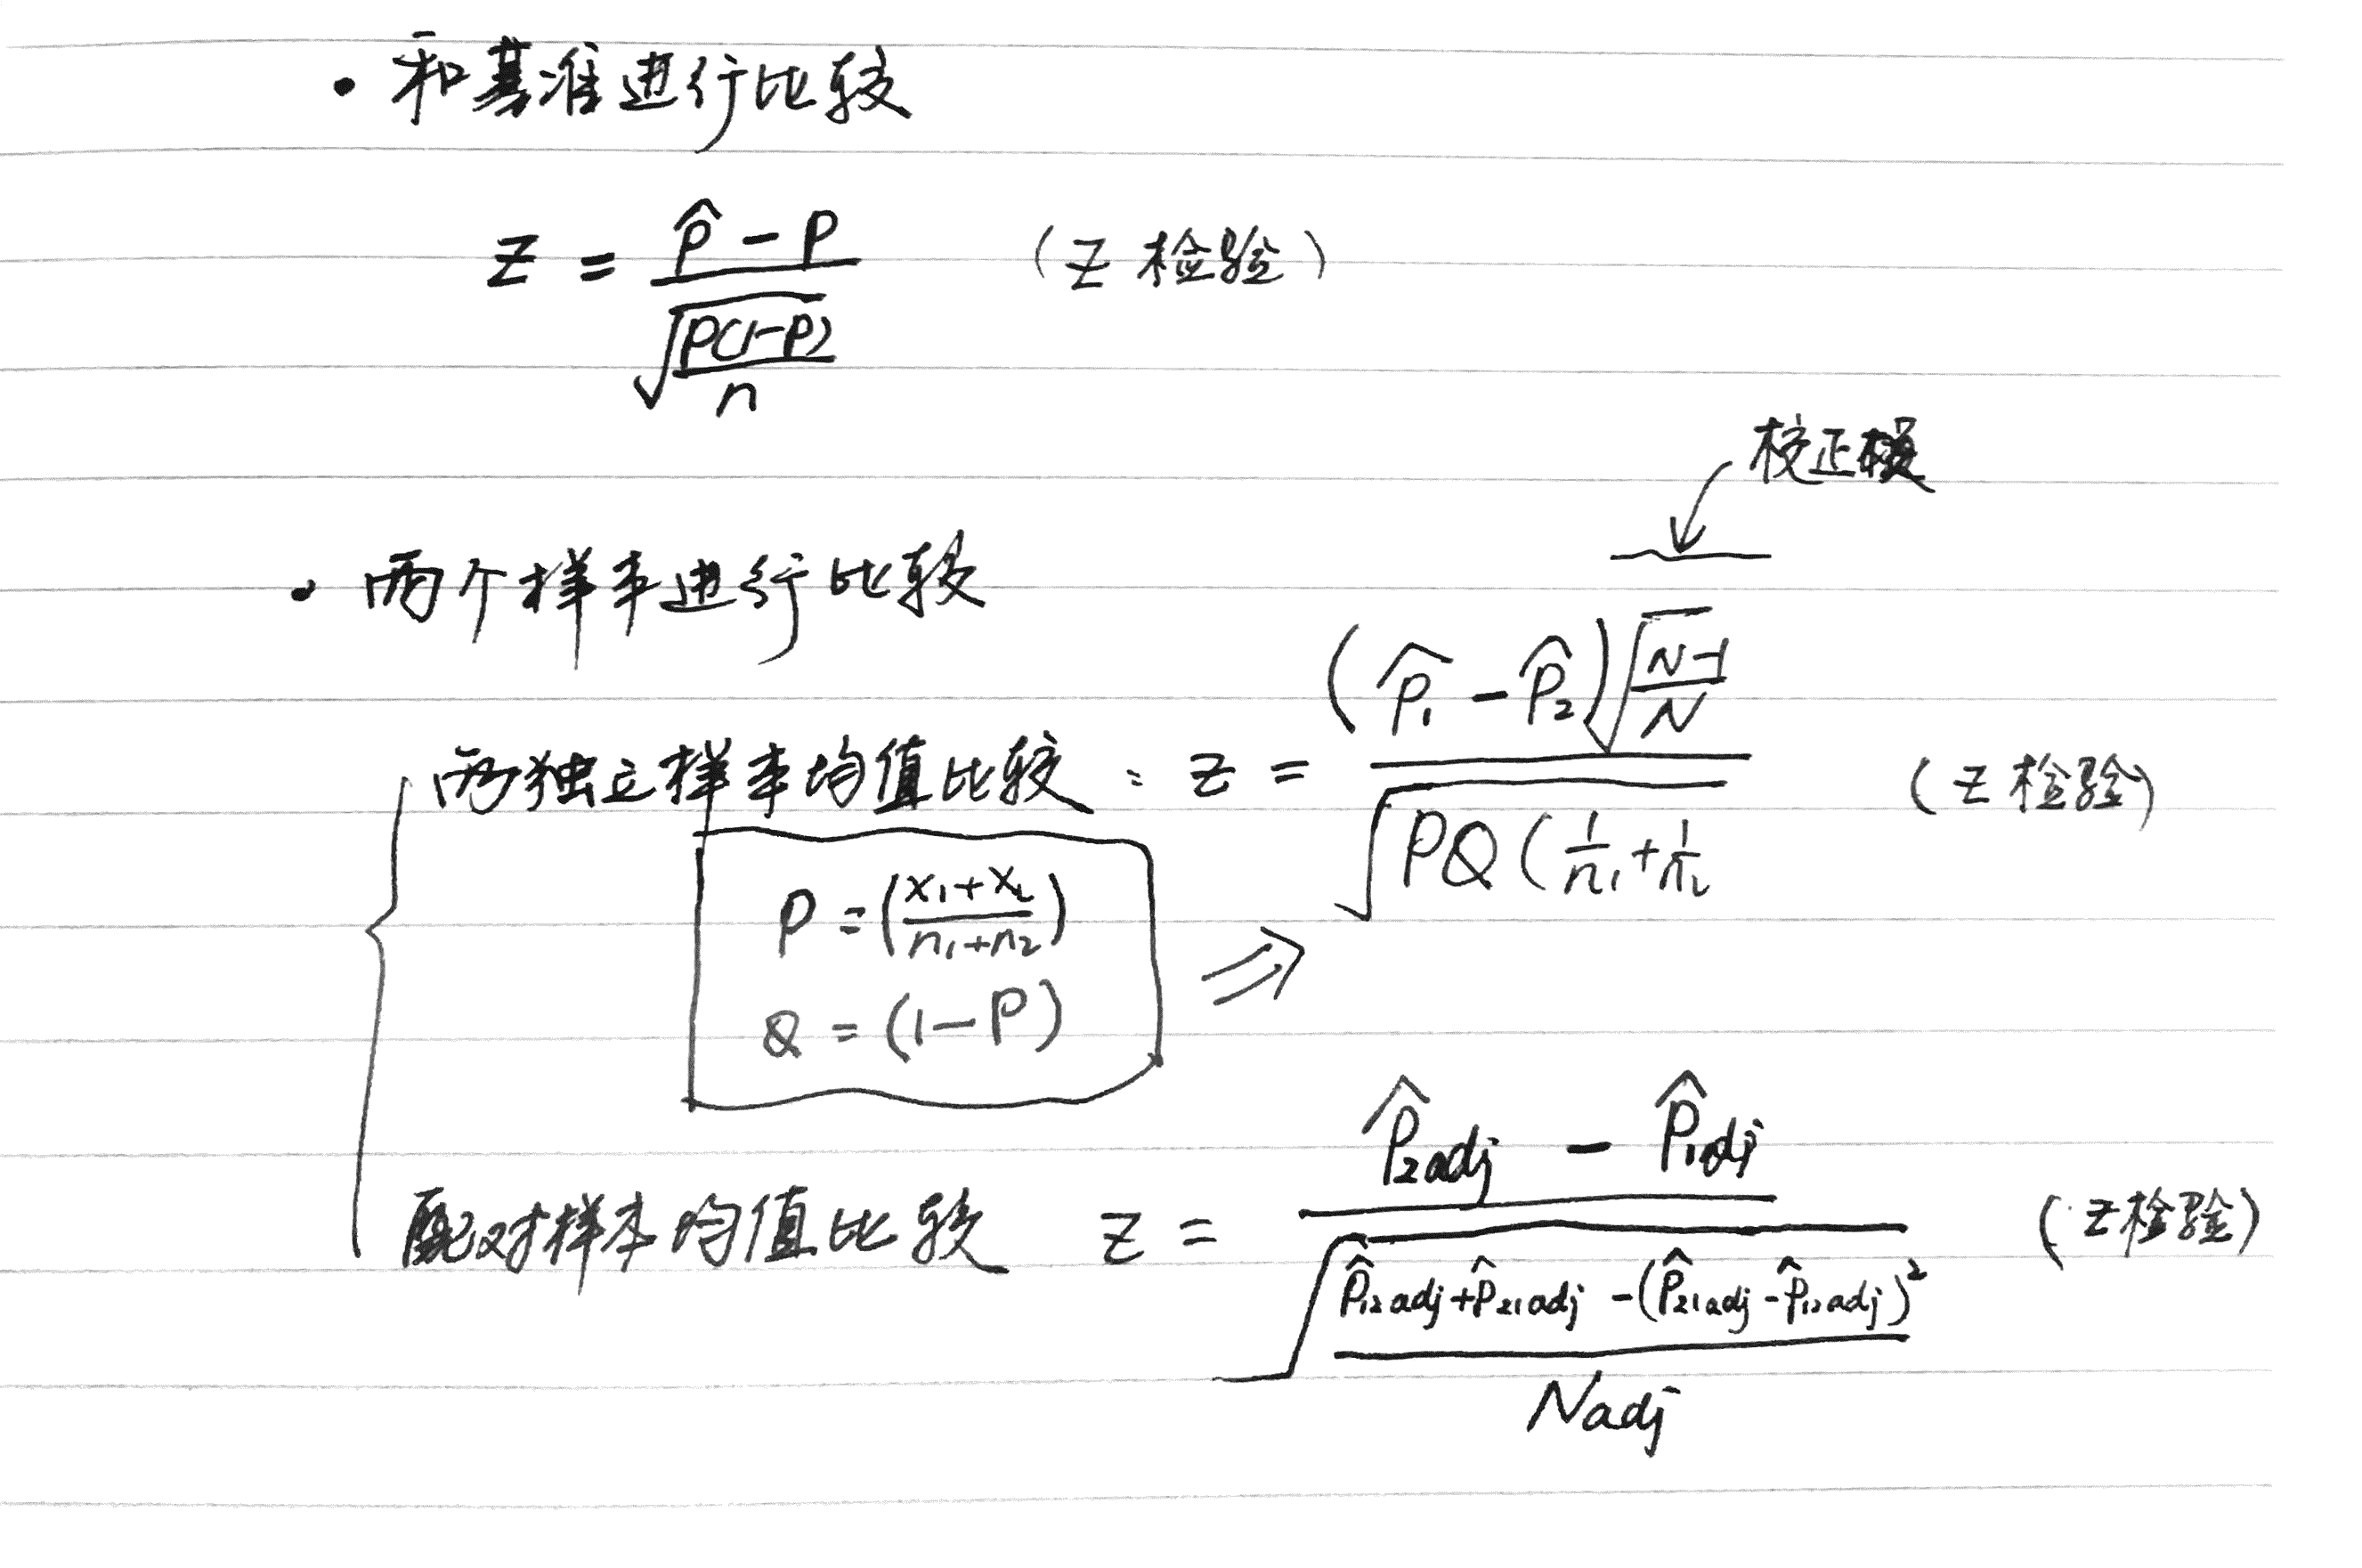 · 和基准进行比较
Z = (p̂ - p) / √(p(1-p)/n) (Z 检验)
校正项
· 两个样本进行比较
两独立样本均值比较: Z = (p̂₁ - p̂₂)√((N-1)/N) / √(PQ(1/n₁ + 1/n₂ (Z 检验)
P = ((x₁+x₂)/(n₁+n₂))
Q = (1-P)
⇒
配对样本均值比较 Z = (p̂₂adj - p̂₁adj) / √((p̂₁₂adj + p̂₂₁adj - (p̂₂₁adj - p̂₁₂adj)²)/Nadj) (Z 检验)